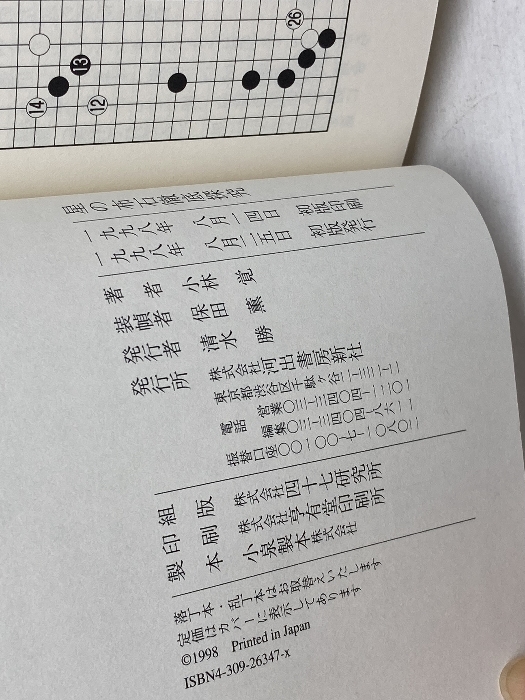 星の布石徹底探究
一九九八年　八月一四日　初版印刷
一九九八年　八月二五日　初版発行
著　者　小林　覚
装幀者　保田　薫
発行者　清水　勝
発行所　株式会社河出書房新社
東京都渋谷区千駄ヶ谷二-三二-二
電話　営業〇三-三四〇四-一二〇一
編集〇三-三四〇四-八六一一
振替口座〇〇一〇〇-七-一〇八〇二
組　版　株式会社四十七研究所
印　刷　株式会社亨有堂印刷所
製　本　小泉製本株式会社
落丁本・乱丁本はお取替えいたします
定価はカバーに表示してあります
©1998　Printed in Japan
ISBN4-309-26347-x
26
13
14
12